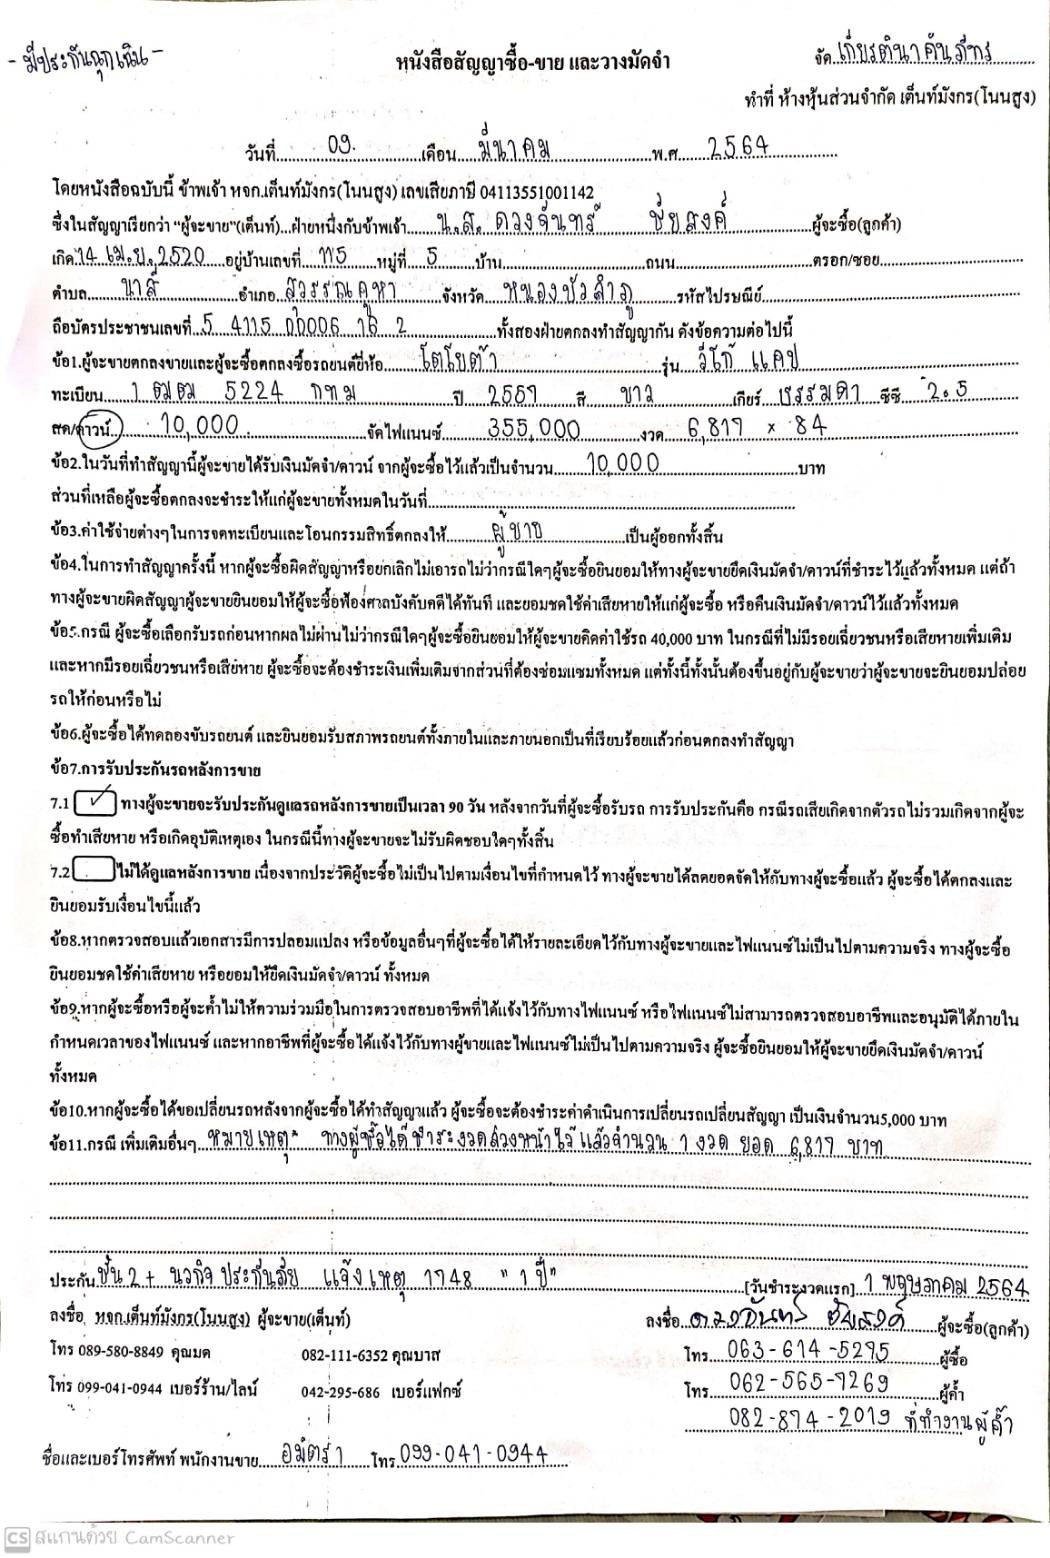 - มีประกันฉุกเฉิน -
หนังสือสัญญาซื้อ-ขาย และวางมัดจำ
จัด เกียรตินาคินภัทร
ทำที่ ห้างหุ้นส่วนจำกัด เต็นท์มังกร(โนนสูง)
วันที่ 09. เดือน มีนาคม พ.ศ. 2564
โดยหนังสือฉบับนี้ ข้าพเจ้า หจก.เต็นท์มังกร(โนนสูง) เลขเสียภาษี 04113551001142
ซึ่งในสัญญาเรียกว่า "ผู้จะขาย"(เต็นท์)...ฝ่ายหนึ่งกับข้าพเจ้า น.ส. ดวงจันทร์ ชัยสงค์ ผู้จะซื้อ(ลูกค้า)
เกิด 14 เม.ย. 2520 อยู่บ้านเลขที่ 115 หมู่ที่ 5 บ้าน ถนน ตรอก/ซอย
ตำบล นาสี อำเภอ สุวรรณคูหา จังหวัด หนองบัวลำภู รหัสไปรษณีย์
ถือบัตรประชาชนเลขที่ 5 4115 00006 16 2 ทั้งสองฝ่ายตกลงทำสัญญากัน ดังข้อความต่อไปนี้
ข้อ1.ผู้จะขายตกลงขายและผู้จะซื้อตกลงซื้อรถยนต์ยี่ห้อ โตโยต้า รุ่น วีโก้ แคป
ทะเบียน 1 ฒฒ 5224 กทม ปี 2551 สี ขาว เกียร์ ธรรมดา ซีซี 2.5
สด/ดาวน์ 10,000 จัดไฟแนนซ์ 355,000 งวด 6,817 × 84
ข้อ2.ในวันที่ทำสัญญานี้ผู้จะขายได้รับเงินมัดจำ/ดาวน์ จากผู้จะซื้อไว้แล้วเป็นจำนวน 10,000 บาท
ส่วนที่เหลือผู้จะซื้อตกลงจะชำระให้แก่ผู้จะขายทั้งหมดในวันที่
ข้อ3.ค่าใช้จ่ายต่างๆในการจดทะเบียนและโอนกรรมสิทธิ์ตกลงให้ ผู้ขาย เป็นผู้ออกทั้งสิ้น
ข้อ4.ในการทำสัญญาครั้งนี้ หากผู้จะซื้อผิดสัญญาหรือยกเลิกไม่เอารถไม่ว่ากรณีใดๆผู้จะซื้อยินยอมให้ทางผู้จะขายยึดเงินมัดจำ/ดาวน์ที่ชำระไว้แล้วทั้งหมด แต่ถ้า
ทางผู้จะขายผิดสัญญาผู้จะขายยินยอมให้ผู้จะซื้อฟ้องศาลบังคับคดีได้ทันที และยอมชดใช้ค่าเสียหายให้แก่ผู้จะซื้อ หรือคืนเงินมัดจำ/ดาวน์ไว้แล้วทั้งหมด
ข้อ5.กรณี ผู้จะซื้อเลือกรับรถก่อนหากผลไม่ผ่านไม่ว่ากรณีใดๆผู้จะซื้อยินยอมให้ผู้จะขายคิดค่าใช้รถ 40,000 บาท ในกรณีที่ไม่มีรอยเฉี่ยวชนหรือเสียหายเพิ่มเติม
และหากมีรอยเฉี่ยวชนหรือเสียหาย ผู้จะซื้อจะต้องชำระเงินเพิ่มเติมจากส่วนที่ต้องซ่อมแซมทั้งหมด แต่ทั้งนี้ทั้งนั้นต้องขึ้นอยู่กับผู้จะขายว่าผู้จะขายจะยินยอมปล่อย
รถให้ก่อนหรือไม่
ข้อ6.ผู้จะซื้อได้ทดลองขับรถยนต์ และยินยอมรับสภาพรถยนต์ทั้งภายในและภายนอกเป็นที่เรียบร้อยแล้วก่อนตกลงทำสัญญา
ข้อ7.การรับประกันรถหลังการขาย
7.1 ✓ ทางผู้จะขายจะรับประกันดูแลรถหลังการขายเป็นเวลา 90 วัน หลังจากวันที่ผู้จะซื้อรับรถ การรับประกันคือ กรณีรถเสียเกิดจากตัวรถไม่รวมเกิดจากผู้จะ
ซื้อทำเสียหาย หรือเกิดอุบัติเหตุเอง ในกรณีนี้ทางผู้จะขายจะไม่รับผิดชอบใดๆทั้งสิ้น
7.2 ไม่ได้ดูแลหลังการขาย เนื่องจากประวัติผู้จะซื้อไม่เป็นไปตามเงื่อนไขที่กำหนดไว้ ทางผู้จะขายได้ลดยอดจัดให้กับทางผู้จะซื้อแล้ว ผู้จะซื้อได้ตกลงและ
ยินยอมรับเงื่อนไขนี้แล้ว
ข้อ8.หากตรวจสอบแล้วเอกสารมีการปลอมแปลง หรือข้อมูลอื่นๆที่ผู้จะซื้อได้ให้รายละเอียดไว้กับทางผู้จะขายและไฟแนนซ์ไม่เป็นไปตามความจริง ทางผู้จะซื้อ
ยินยอมชดใช้ค่าเสียหาย หรือยอมให้ยึดเงินมัดจำ/ดาวน์ ทั้งหมด
ข้อ9.หากผู้จะซื้อหรือผู้จะค้ำไม่ให้ความร่วมมือในการตรวจสอบอาชีพที่ได้แจ้งไว้กับทางไฟแนนซ์ หรือไฟแนนซ์ไม่สามารถตรวจสอบอาชีพและอนุมัติได้ภายใน
กำหนดเวลาของไฟแนนซ์ และหากอาชีพที่ผู้จะซื้อได้แจ้งไว้กับทางผู้ขายและไฟแนนซ์ไม่เป็นไปตามความจริง ผู้จะซื้อยินยอมให้ผู้จะขายยึดเงินมัดจำ/ดาวน์
ทั้งหมด
ข้อ10.หากผู้จะซื้อได้ขอเปลี่ยนรถหลังจากผู้จะซื้อได้ทำสัญญาแล้ว ผู้จะซื้อจะต้องชำระค่าดำเนินการเปลี่ยนรถเปลี่ยนสัญญา เป็นเงินจำนวน5,000 บาท
ข้อ11.กรณี เพิ่มเติมอื่นๆ หมายเหตุ* ทางผู้ซื้อได้ชำระงวดล่วงหน้าไว้แล้วจำนวน 1 งวด ยอด 6,817 บาท
ประกัน ชั้น 2+ นวกิจ ประกันภัย แจ้งเหตุ 1748 "1 ปี" [วันชำระงวดแรก] 1 พฤษภาคม 2564
ลงชื่อ หจก.เต็นท์มังกร(โนนสูง) ผู้จะขาย(เต็นท์) ลงชื่อ ดวงจันทร์ ชัยสงค์ ผู้จะซื้อ(ลูกค้า)
โทร 089-580-8849 คุณมด 082-111-6352 คุณบาส โทร 063-614-5295 ผู้ซื้อ
โทร 099-041-0944 เบอร์ร้าน/ไลน์ 042-295-686 เบอร์แฟกซ์ โทร 062-565-9269 ผู้ค้ำ
082-874-2019 ที่ทำงานผู้ค้ำ
ชื่อและเบอร์โทรศัพท์ พนักงานขาย อมิตรา โทร 099-041-0944
CS สแกนด้วย CamScanner